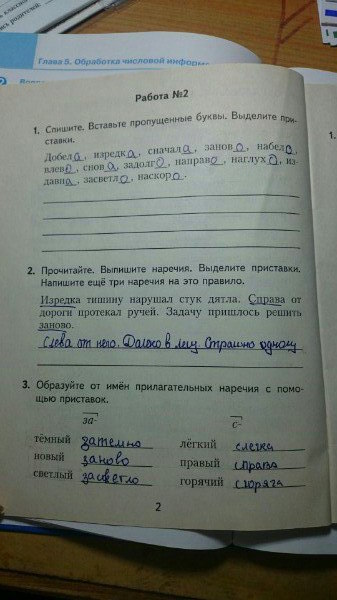 Глава 5. Обработка числовой информ
Работа №2
1. Спишите. Вставьте пропущенные буквы. Выделите при-
ставки.
Добела, изредка, сначала, заново, набела,
влево, снова, задолго, направо, наглухо, из-
давна, засветло, наскоро.
2. Прочитайте. Выпишите наречия. Выделите приставки.
Напишите ещё три наречия на это правило.
Изредка тишину нарушал стук дятла. Справа от
дороги протекал ручей. Задачу пришлось решить
заново.
Слева от него. Далеко в лесу. Страшно одному
3. Образуйте от имён прилагательных наречия с помо-
щью приставок.
за- с-
тёмный затемно лёгкий слегка
новый заново правый справа
светлый засветло горячий сгоряча
2
1.